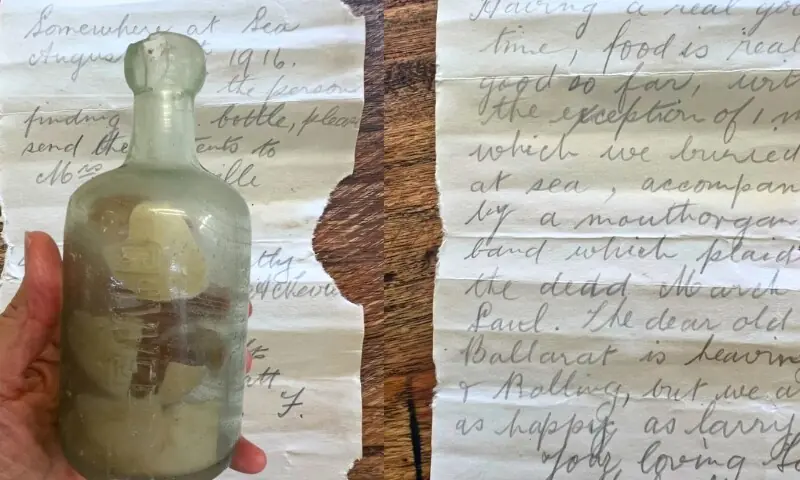 Somewhere at Sea
August 1916.
the person
finding bottle, please
send the tents to
Mrs ville
F.
Having a real goo
time, food is real
good so far, wit
the exception of 1 m
which we buried
at sea, accompan
by a mouthorgan
band which plaid
the dedd March
Saul. The dear old
Ballarat is heaving
& Rolling, but we a
as happy as larry
Your loving So